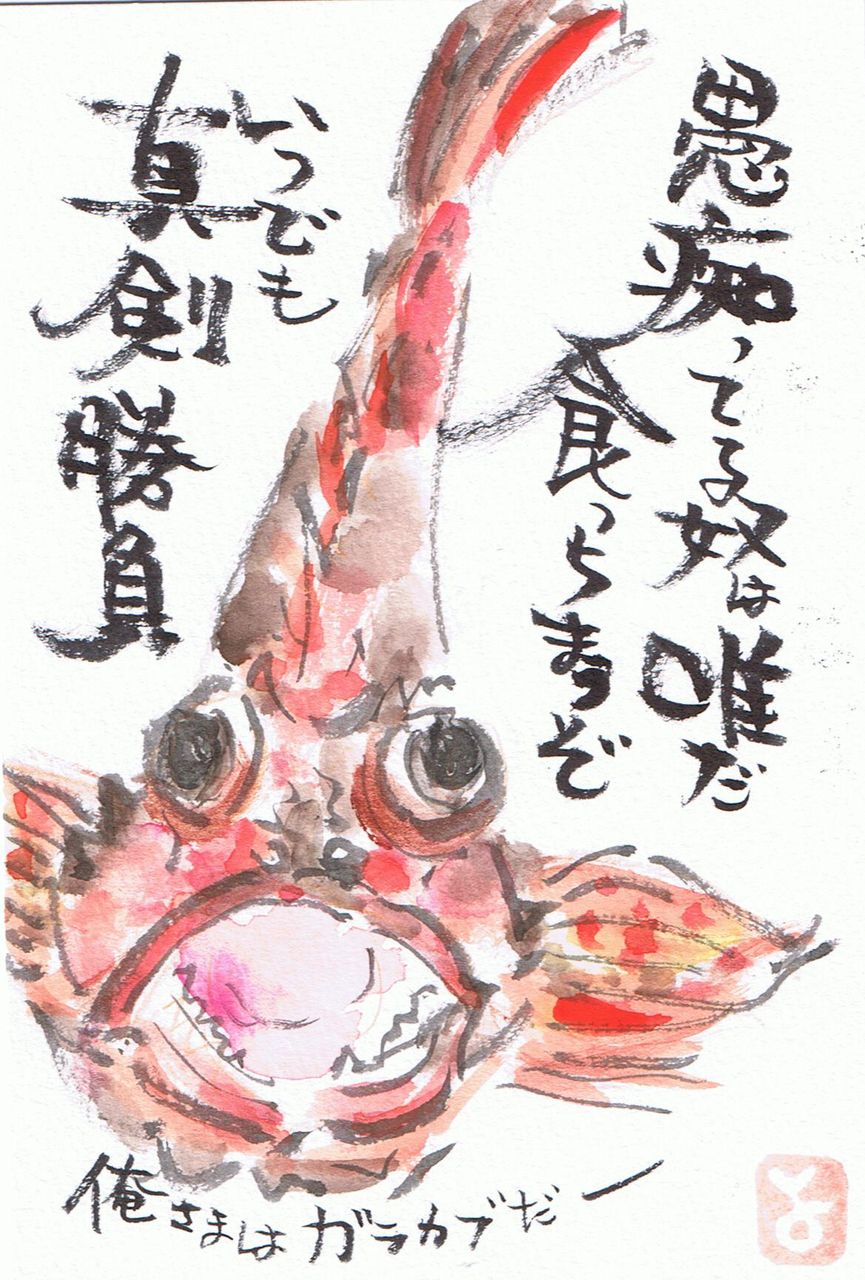 愚痴ってる奴は唯だ
食っちまうぞ
いつでも
真剣勝負
俺さまはガラカブだー